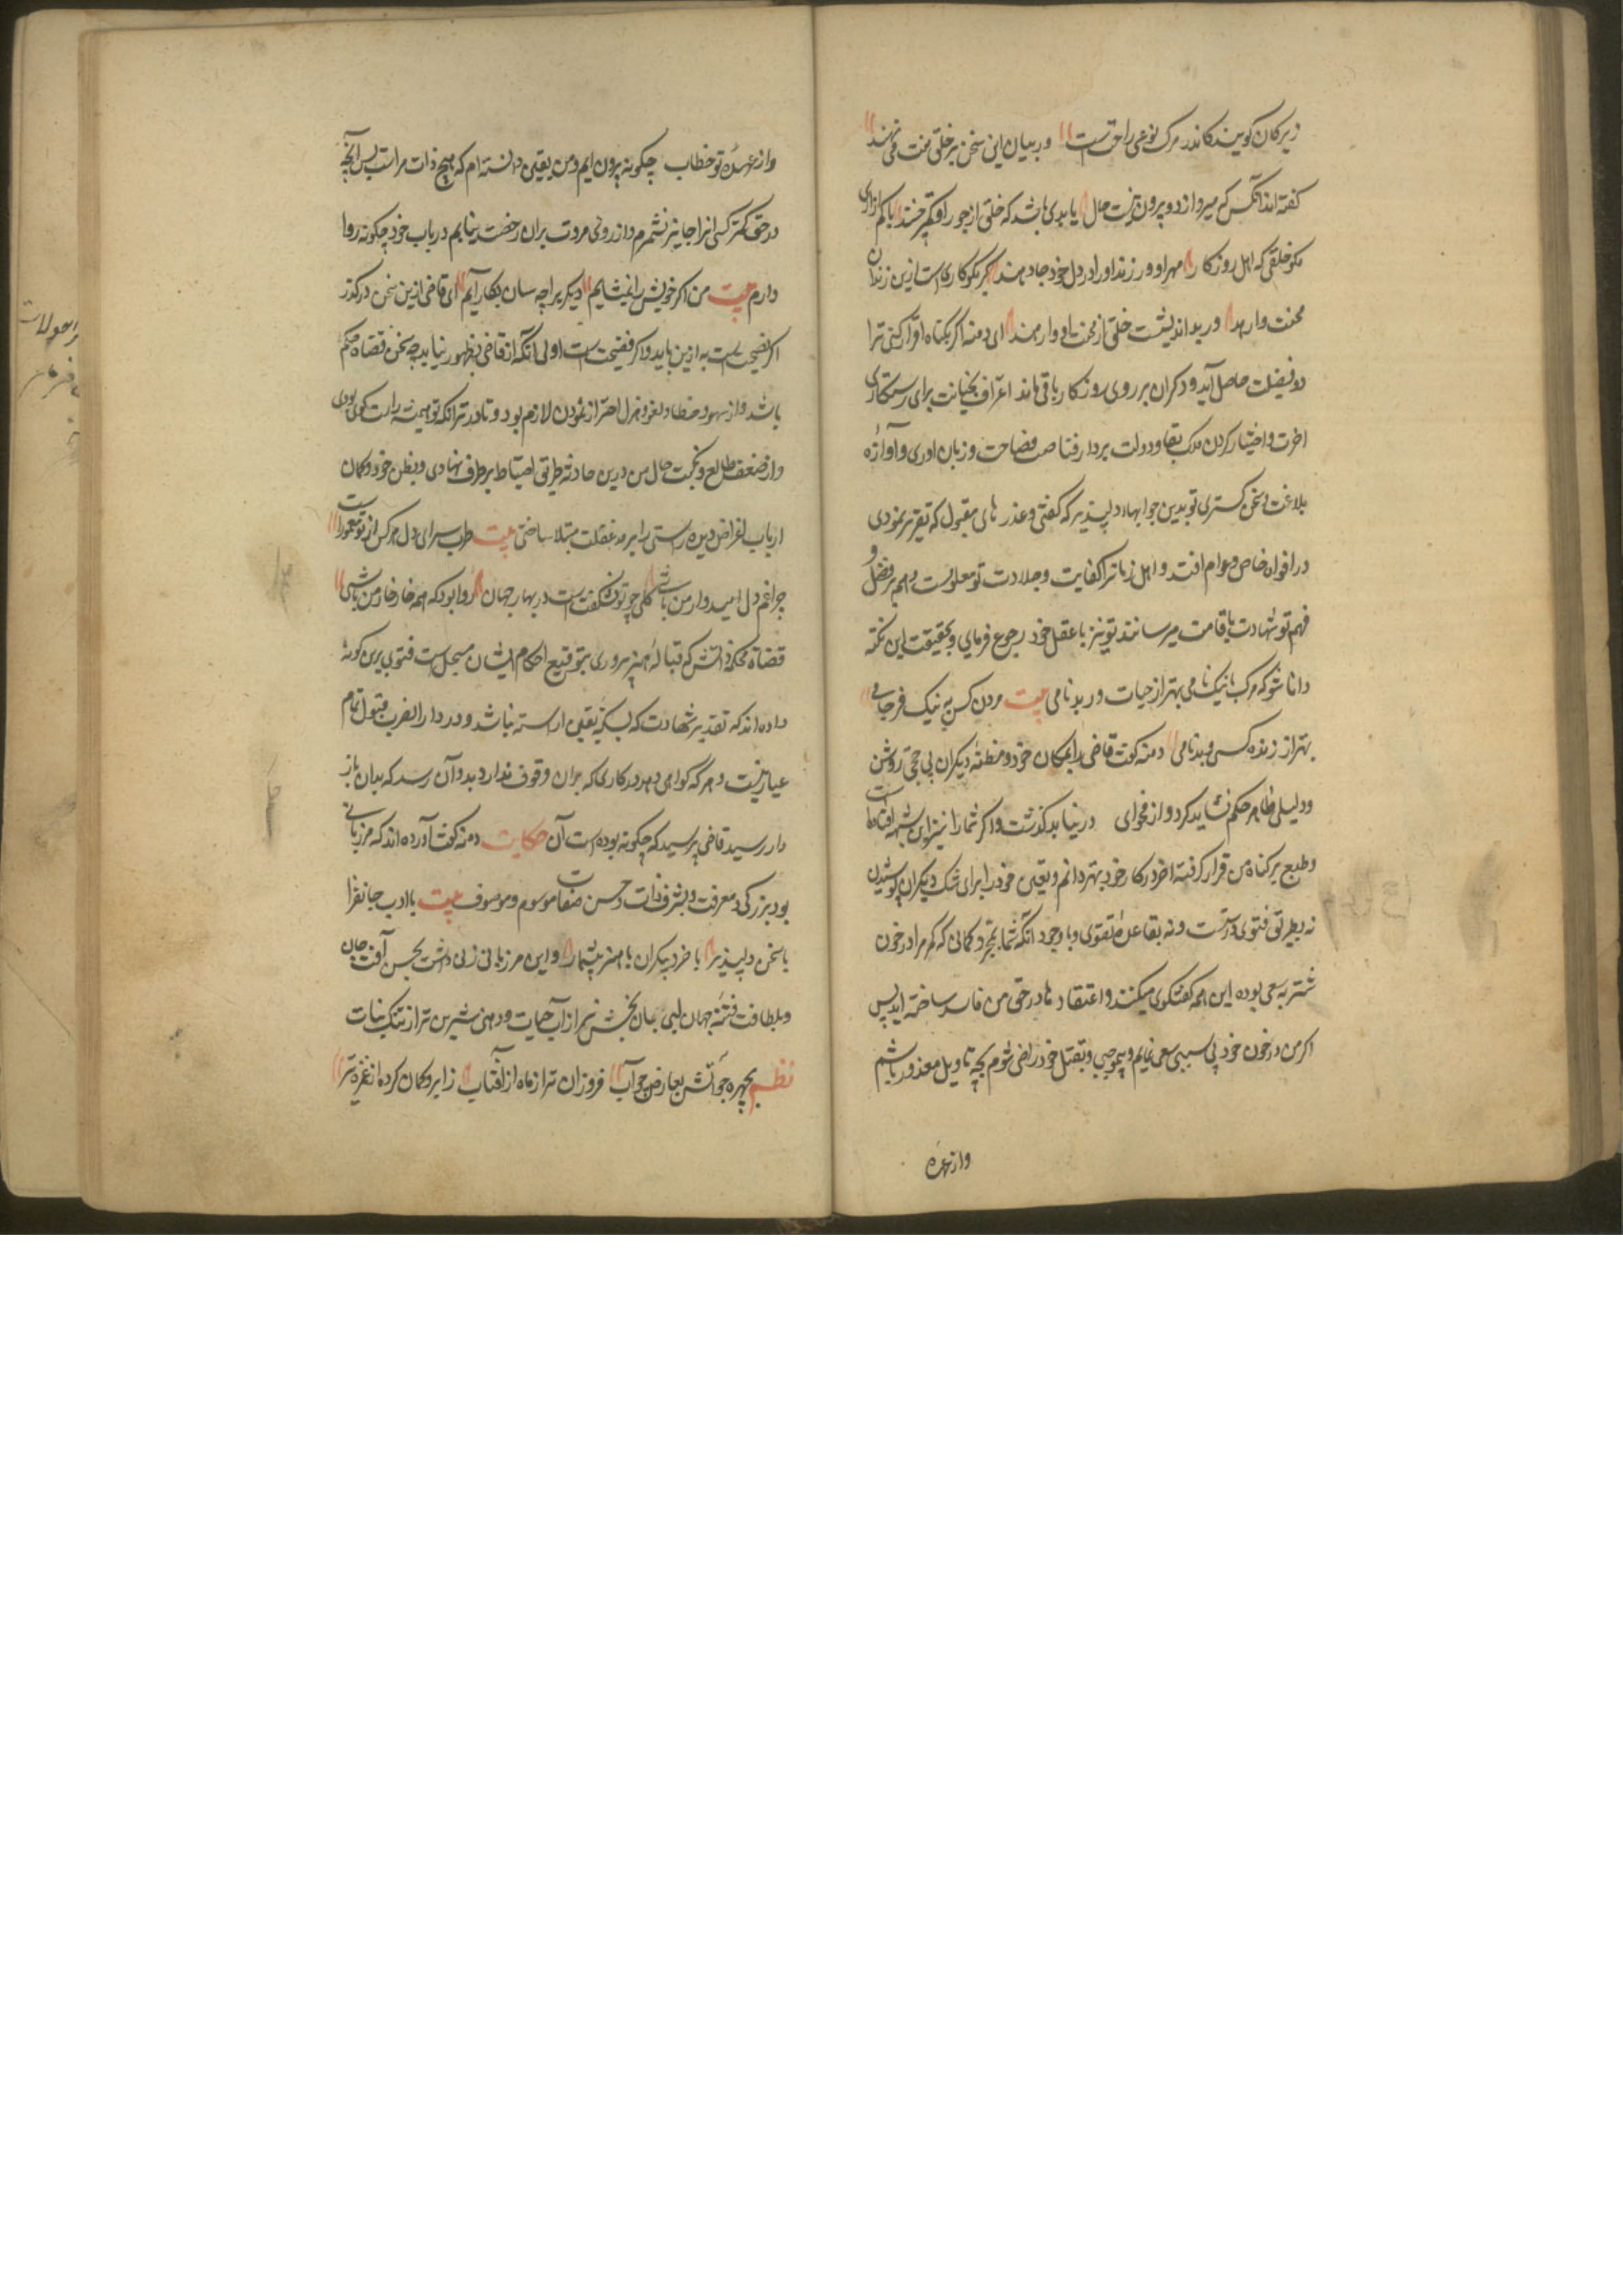 زیرکان کویند کاندر مرک نوعی راحتست و در بیان این سخن بر خلق منت می نهند
کفته اند آنکس که میرد از دو بیرون نیست حال یا بدی باشد که خلق از جور او کم‌آزاری
نکو خلقی که اهل روزکار مهر او ورزند او را در دل خود جا دهند کر نکوکار است ازین زندان
محنت وارهد ور بداندیشست خلق از محنت او وارهند ای دمنه اکر بکناه اقرار کنی ترا
دو فضیلت حاصل آید و ذکر آن بر روی روزکار باقی ماند اعتراف بخیانت برای رستکاری
اخرت و اختیار کردن ملک بقا و دولت بر دار فنا صیت فصاحت و زبان اوری و آوازه
بلاغت و سخن کستری تو بدین جوابهاء دلپذیر که کفتی و عذر های مقبول که تقریر نمودی
در افواه خاص و عوام افتد و اهل زمانرا کفایت و جلادت تو معلومست و همه بر فضل و
فهم تو شهادت باقامت میرسانند تو نیز با عقل خود رجوع فرمای و بحقیقت این نکته
دانا شو که مرک با نیک نامی بهتر از حیات در بدنامی بیت مردن کس به نیک فرجامی
بهتر از زنده کسی و بدنامی دمنه کفت قاضی را بکمان خود و مظنه دیکران بی حجتی روشن
و دلیلی ظاهر حکم نشاید کرد و از فحوای در نباید کذشت و اکر شما را نیز این شبهه افتاده است
و طبع بر کناه من قرار کرفته اخر در کار خود بهتر دانم و یقین خود را برای شک دیکران پوشیدن
نه بطریق فتوی درست و نه بقاعده تقوی و با وجود آنکه شما بمجرد کمانی که مکر مرا در خون
شتربه سعی بوده این همه کفتکوی میکنند و اعتقاد ها در حق من فاسد ساخته اید پس
اکر من در خون خود بی سببی سعی نمایم و بیموجبی و بقتل خود راضی شوم بچه تاویل معذور باشم
واز عهده
واز عهده تو خطاب چکونه بیرون ایم و من یقین دانسته ام که هیچ ذات مرا نیست پس آنچه
در حق کمتر کسی انرا جایز نشمرم و از روی مروت بران رخصت نیابم در باب خود چکونه روا
دارم بیت من اکر خویش را نشایم دیکر یرا چه سان بکار آیم ای قاضی ازین سخن درکذر
اکر نصیحت است به ازین باید و اکر فضیحت است اولی آنکه از قاضی بظهور نیاید چه سخن قضاة حکم
باشد و از سهو و خطا و لغو و هزل احتراز نمودن لازم بود و نادر تر انکه تو همیشه راست کوی بودی
و از ضعف طالع و نکبت حال من درین حادثه طریق احتیاط بر طرف نهادی و بظن خود و کمان
ارباب اغراض دیده راستی را برمد غفلت مبتلا ساختی بیت طرب سرای دل هر کس از تو معمور است
چرا غم دل امیدوار من باشی کلی چو تو نشکفتست در بهار جهان روا بود که همه خار خار من باشی
قضاة محکمه دانش که قباله هنر پروری بتوقیع احکام ایشان مسجل است فتوی برین کونه
داده اند که نقد هر شهادت که بسکه یقین اراسته نباشد و در دار الضرب قبول تمام
عیار نیست و هر که کواهی دهد در کاری که بران وقوف ندارد بدو آن رسد که بدان باز
دار رسید قاضی پرسید که چکونه بوده است آن حکایت دمنه کفت آورده اند که مرزبانی
بود بزرکی و معرفت و بشرف ذات و حسن صفات موسوم و موصوف بیت با ادب جانفزا
با سخن دلپذیر با خرد بیکران با هنر بیشمار و این مرزبانی زنی داشت بحسن آفت جان
و بلطافت فتنه جهان لبی جان بخش تر از آب حیات و دهنی شیرین تر از تنک نبات
نظم بچهره چو آتش بعارض چو آب فروزان تر از ماه از آفتاب ز ابرو کمان کرده از غمزه تیر